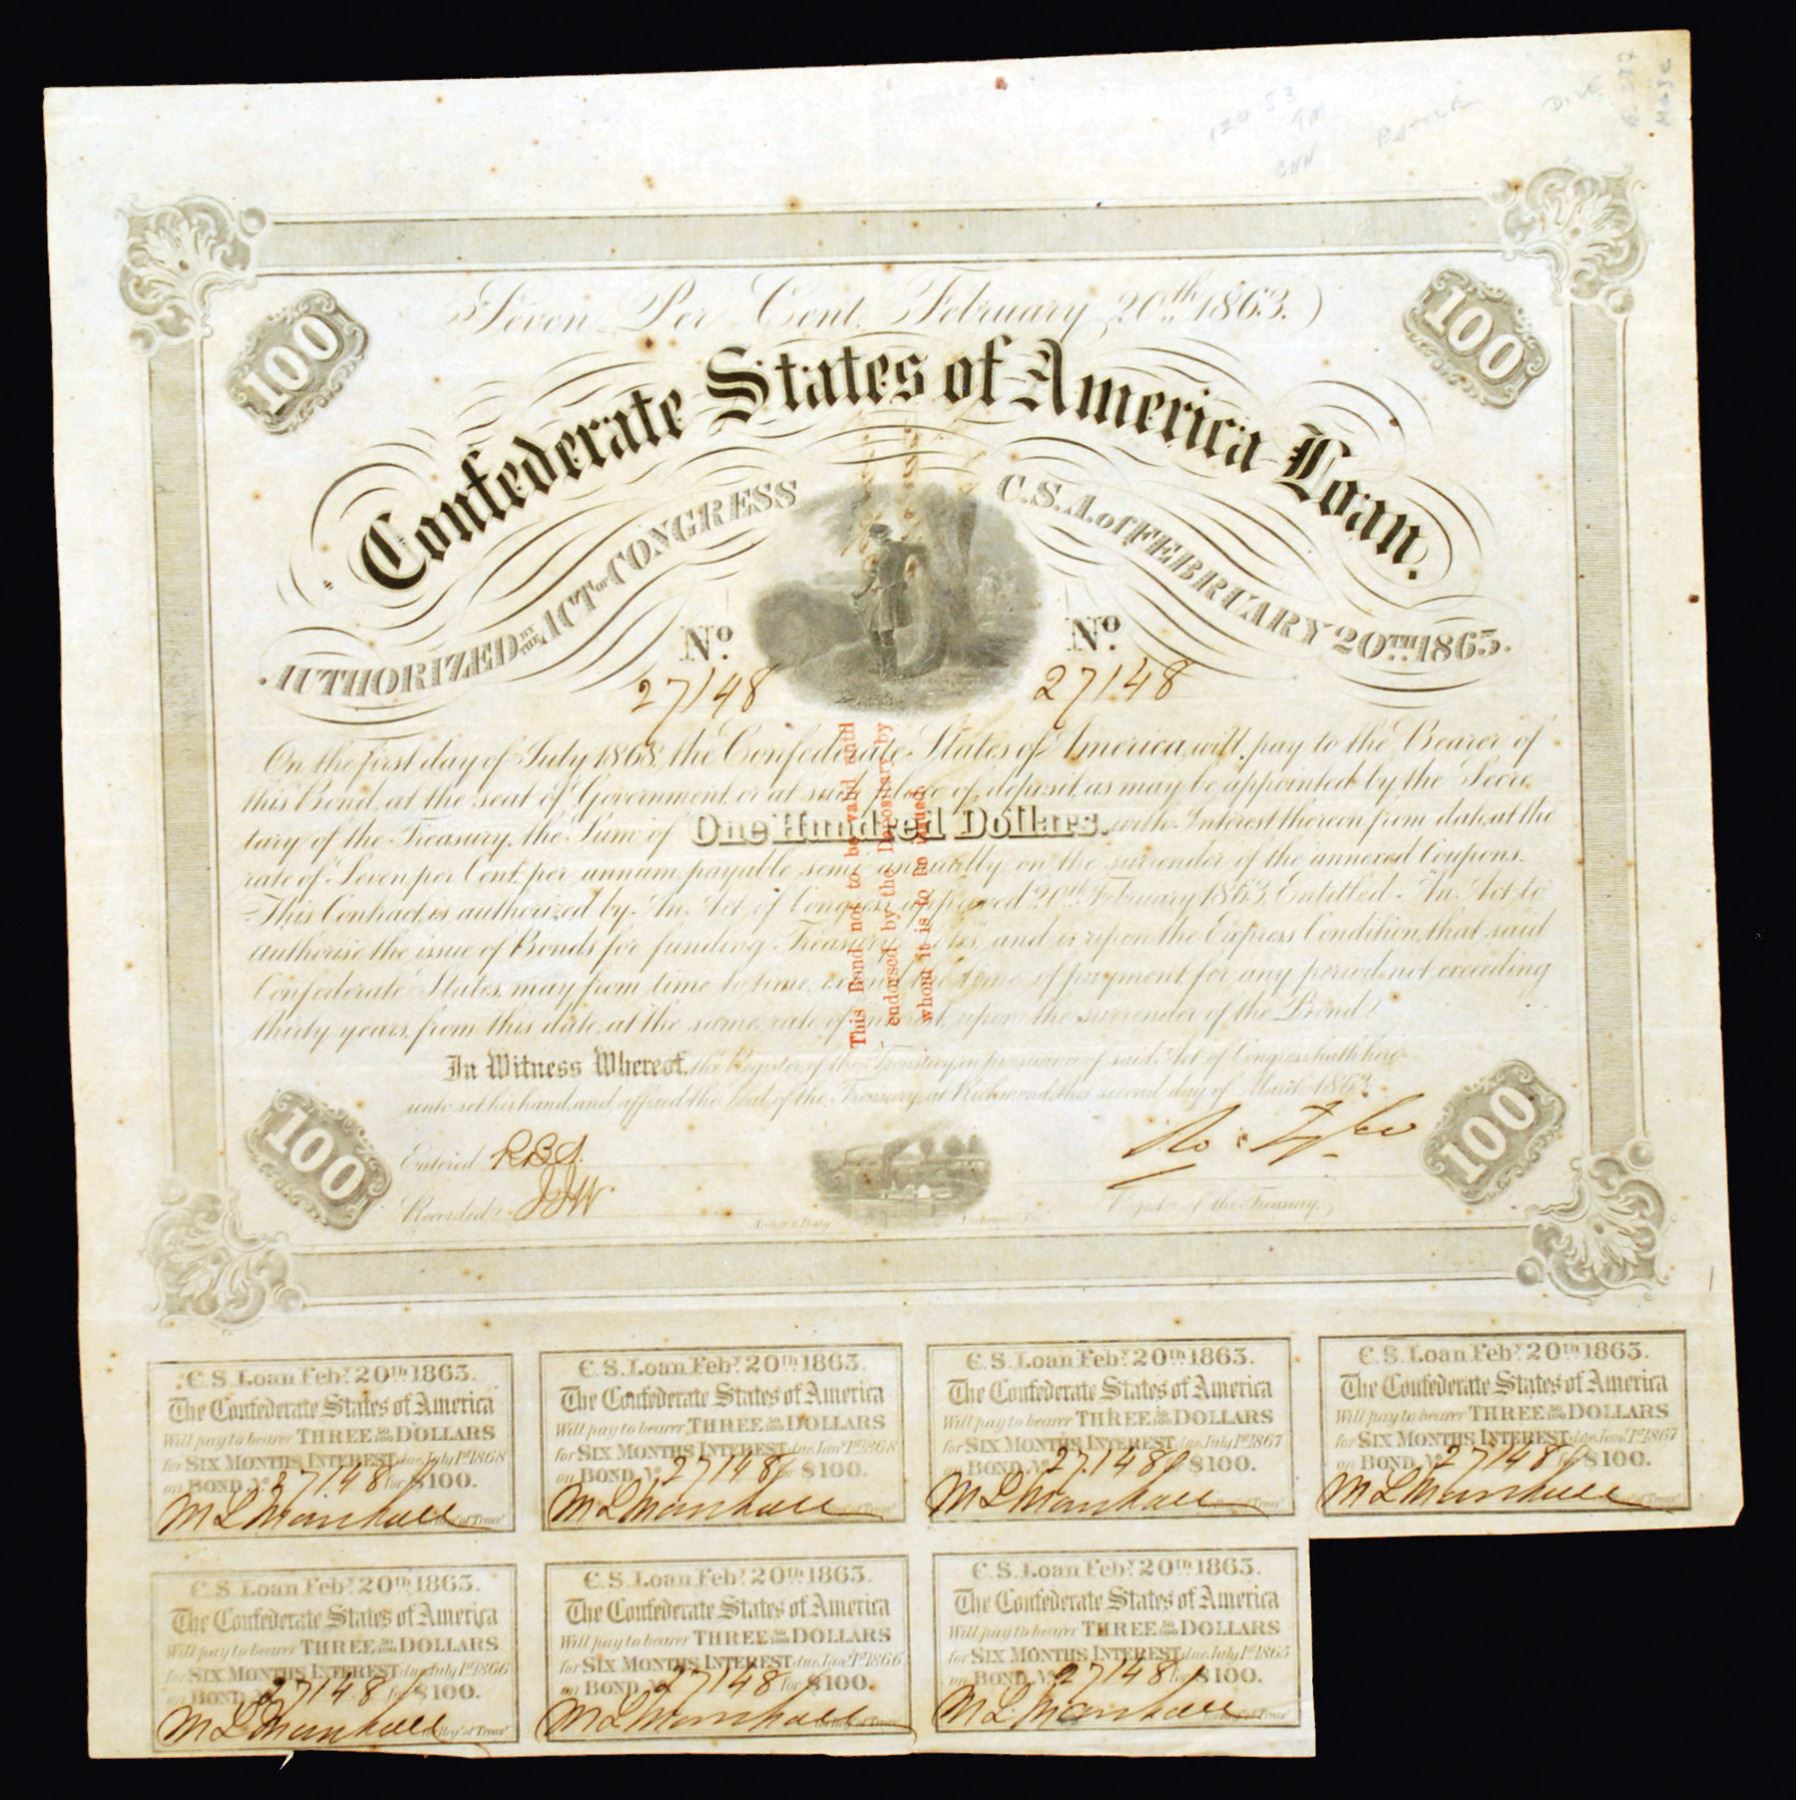 120 53
TM
CNN
6.287
100
Seven Per Cent. February 20th 1863.)
100
Confederate States of America Loan.
AUTHORIZED BY THE ACT OF CONGRESS
C.S.A. of FEBRUARY 20TH 1863.
No. 27148
No. 27148
On the first day of July 1868, the Confederate States of America, will pay to the Bearer of
this Bond, at the seat of Government, or at such place of deposit, as may be appointed by the Secre.
tary of the Treasury, the Sum of One Hundred Dollars. with Interest thereon from date, at the
rate of Seven per Cent. per annum, payable semi annually on the surrender of the annexed Coupons.
This Contract, is authorized by An Act of Congress approved 20th February 1863, Entitled An Act to
authorise the issue of Bonds for funding Treasury Notes, and is upon the Express Condition, that said
Confederate States, may from time to time, extend the time of payment for any period, not exceeding
thirty years, from this date, at the same rate of interest, upon the surrender of the Bond.
This Bond not to be valid until
endorsed by the Depositary by
whom it is to be issued.
In Witness Whereof, the Register of the Treasury, in pursuance of said Act of Congress hath here
unto set his hand, and affixed the Seal of the Treasury, at Richmond, this second day of March 1863.
100
Entered R.B.S.
Ro. Tyler
100
Recorded J.J.W.
Register of the Treasury.
C.S. Loan Feby. 20th 1863.
The Confederate States of America
Will pay to bearer THREE 50/100 DOLLARS
for SIX MONTHS INTEREST due July 1st 1868
on BOND No. 27148 for $100.
M L Marshall for Regr. of Treasy.
C.S. Loan Feby. 20th 1863.
The Confederate States of America
Will pay to bearer THREE 50/100 DOLLARS
for SIX MONTHS INTEREST due Jany. 1st 1868
on BOND No. 27148 for $100.
M L Marshall for Regr. of Treasy.
C.S. Loan Feby. 20th 1863.
The Confederate States of America
Will pay to bearer THREE 50/100 DOLLARS
for SIX MONTHS INTEREST due July 1st 1867
on BOND No. 27148 for $100.
M L Marshall for Regr. of Treasy.
C.S. Loan Feby. 20th 1863.
The Confederate States of America
Will pay to bearer THREE 50/100 DOLLARS
for SIX MONTHS INTEREST due Jany. 1st 1867
on BOND No. 27148 for $100.
M L Marshall for Regr. of Treasy.
C.S. Loan Feby. 20th 1863.
The Confederate States of America
Will pay to bearer THREE 50/100 DOLLARS
for SIX MONTHS INTEREST due July 1st 1866
on BOND No. 27148 for $100.
M L Marshall for Regr. of Treasy.
C.S. Loan Feby. 20th 1863.
The Confederate States of America
Will pay to bearer THREE 50/100 DOLLARS
for SIX MONTHS INTEREST due Jany. 1st 1866
on BOND No. 27148 for $100.
M L Marshall for Regr. of Treasy.
C.S. Loan Feby. 20th 1863.
The Confederate States of America
Will pay to bearer THREE 50/100 DOLLARS
for SIX MONTHS INTEREST due July 1st 1865
on BOND No. 27148 for $100.
M L Marshall for Regr. of Treasy.